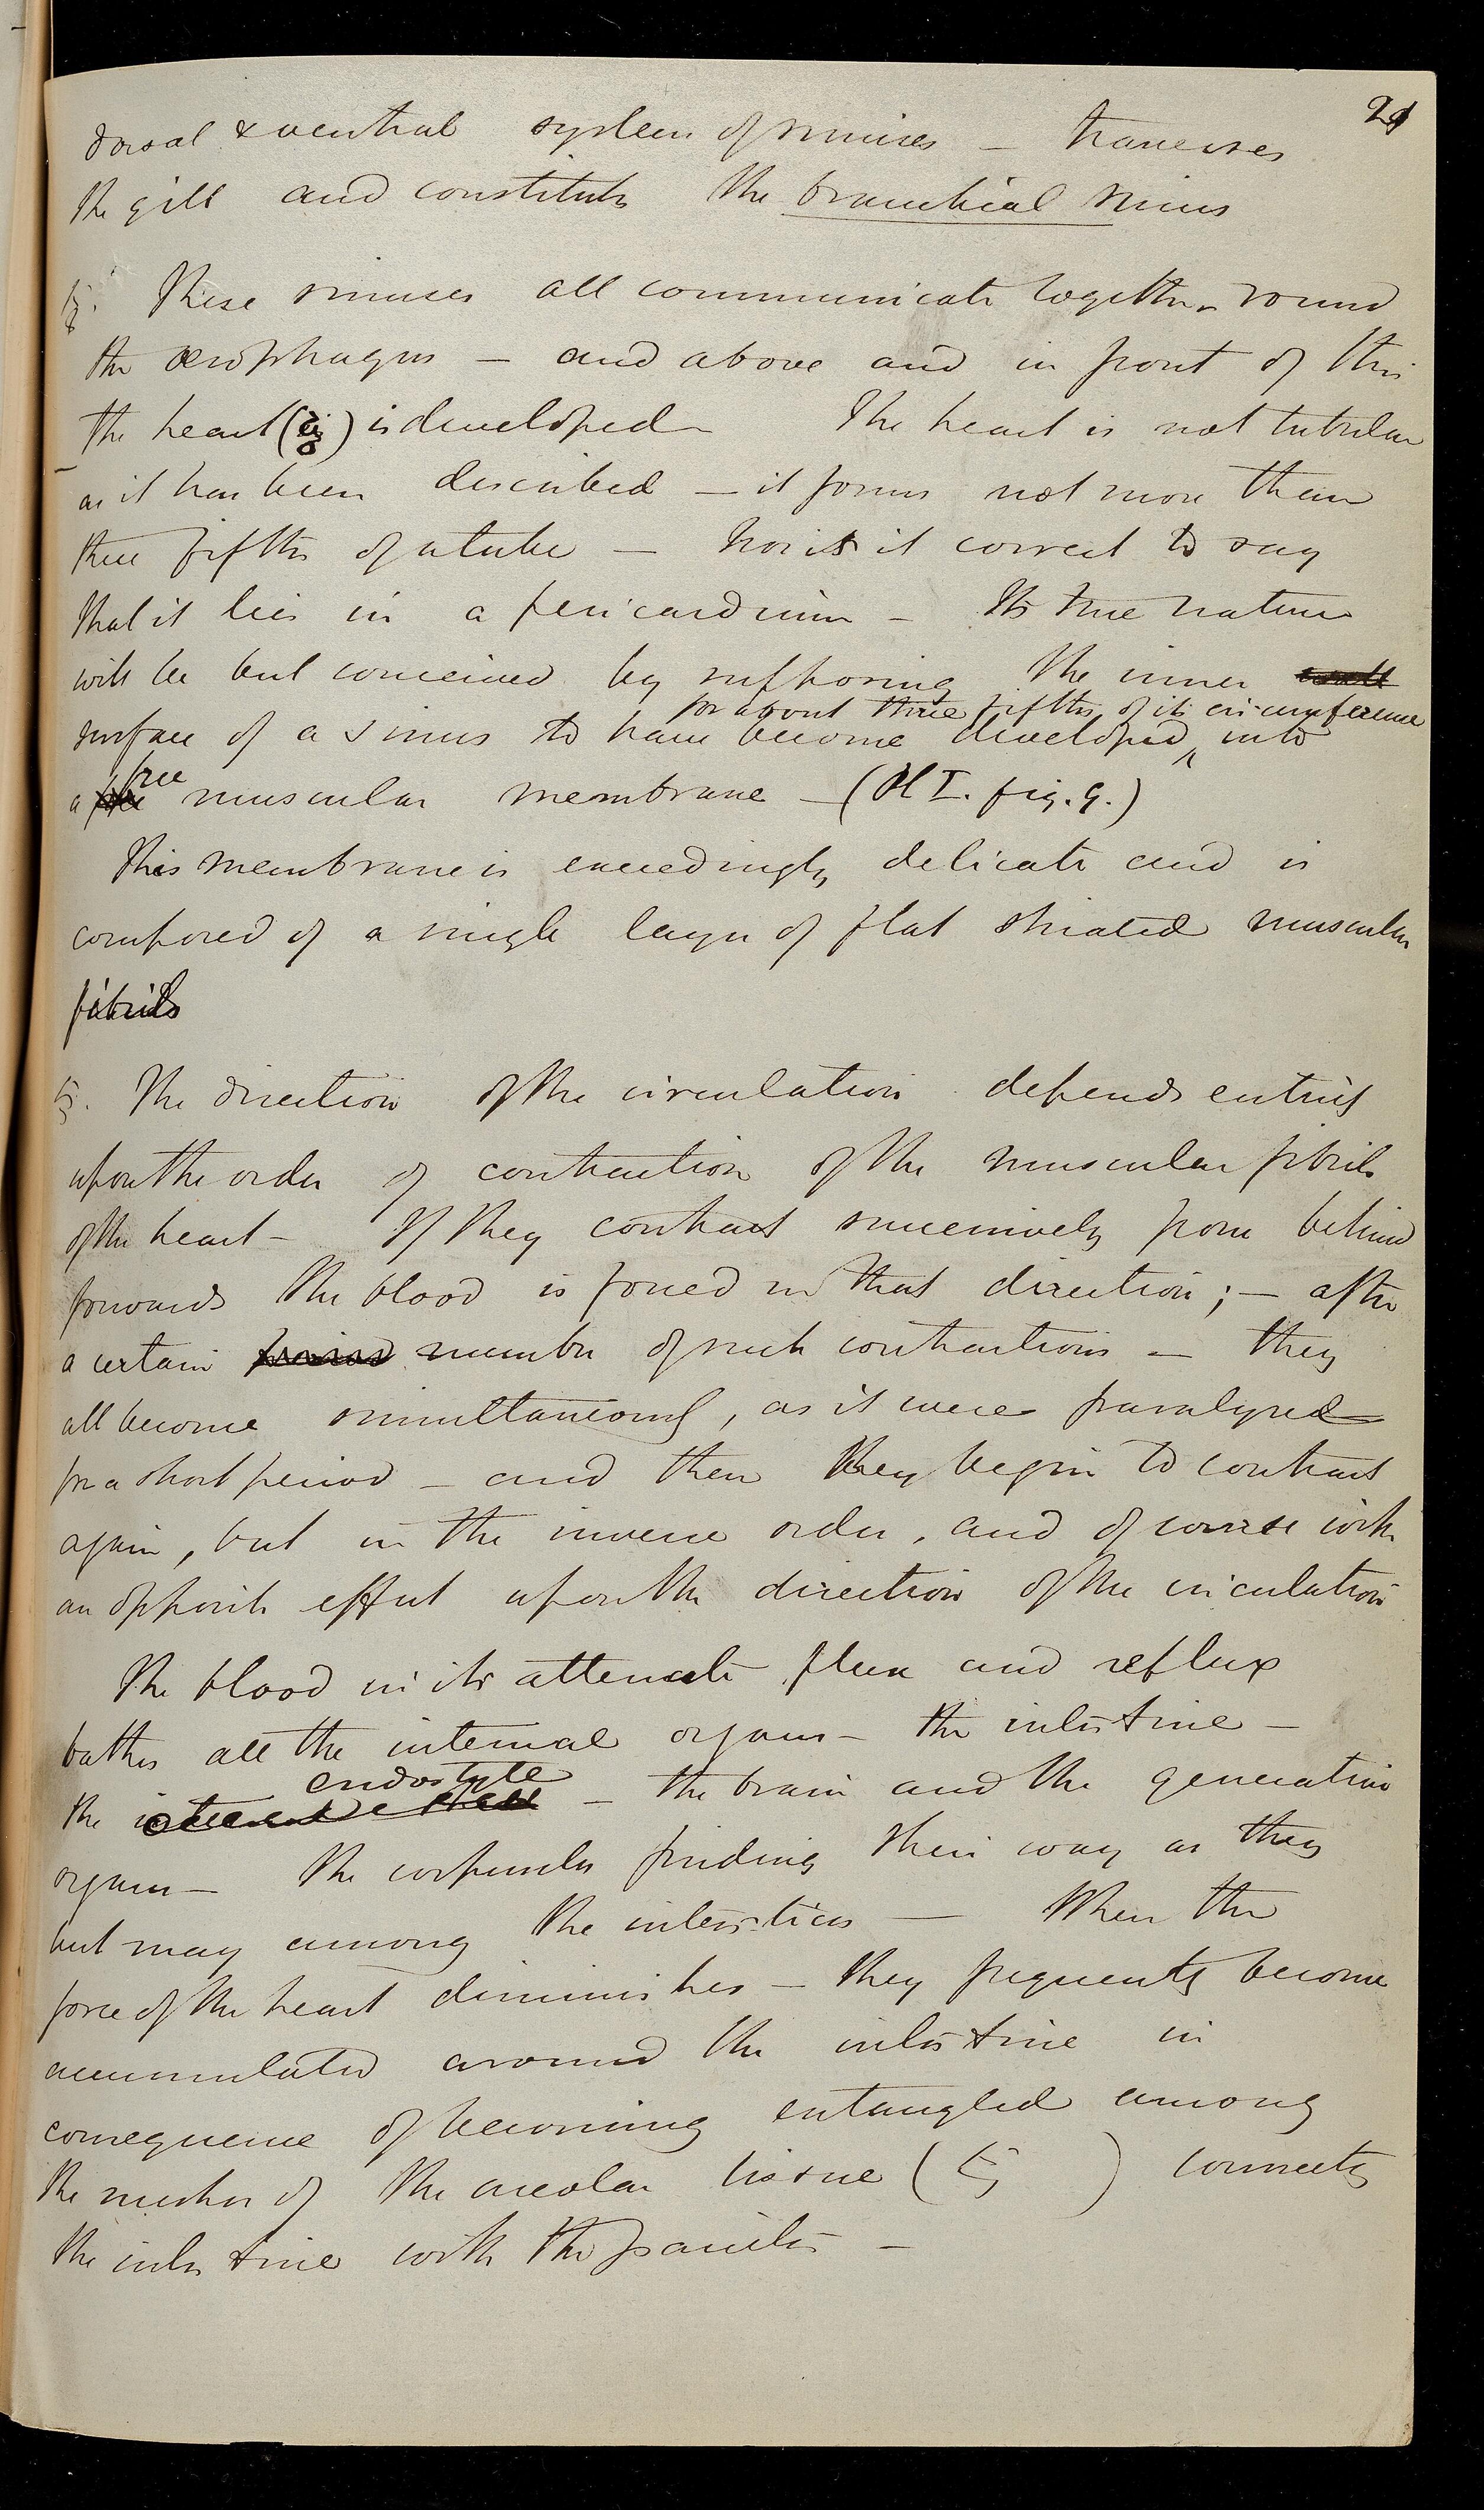 21
dorsal & ventral system of sinuses — traverses
the gill and constitutes the branchial sinus
These sinuses all communicate together round
the œsophagus — and above and in front of this
the heart ( ) is developed The heart is not tubular
as it has been described — it forms not more than
three fifths of a tube — Nor is it correct to say
that it lies in a pericardium — Its true nature
will be best conceived by supposing the inner
for about three fifths of its circumference
surface of a sinus to have become developed ^ into
a free muscular membrane — (Pl I. fig. 9.)
This membrane is exceedingly delicate and is
composed of a single layer of flat striated muscular
fibrils
The direction of the circulation depends entirely
upon the order of contraction of the muscular fibrils
of the heart — If they contract successively from behind
forwards the blood is forced in that direction ; — after
a certain period number of such contractions — they
all become simultaneously, as it were paralyzed
for a short period — and then they begin to contract
again, but in the inverse order, and of course with
an opposite effect upon the direction of the circulation
The blood in its alternate flux and reflux
bathes all the internal organs — the intestine —
endostyle
the — the brain and the generative
organs — The corpuscles finding their way as they
best may among the interstices — When the
force of the heart diminishes — they frequently become
accumulated around the intestine in
consequence of becoming entangled among
the meshes of the areolar tissue ( ) connects
the intestine with the parietes —